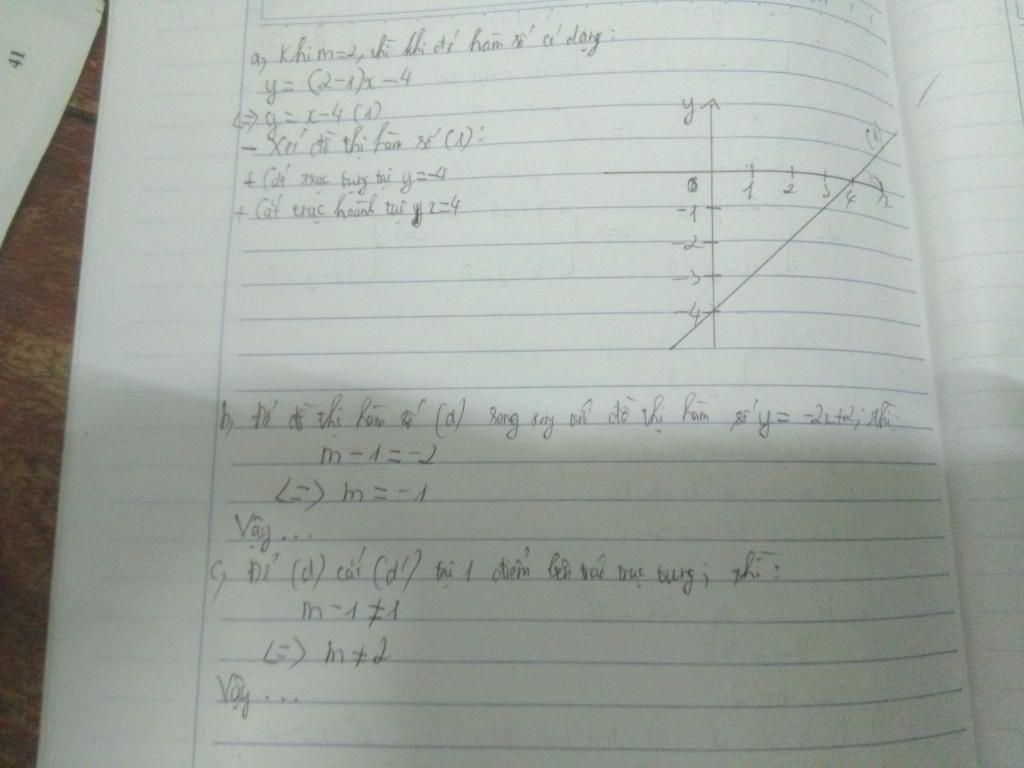 41
a, Khi m=2, thì khi đó hàm số có dạng:
y = (2-1)x-4
<=> y = x-4 (1)
- Xét đồ thị hàm số (1):
+ Cắt trục tung tại y=-4
+ Cắt trục hoành tại x=4
y
(1)
0 1 2 3 4 x
-1
-2
-3
-4
b, Để đồ thị hàm số (d) song song với đồ thị hàm số y = -2x+2; thì:
m-1=-2
<=> m = -1
Vậy ...
c, Để (d) cắt (d') tại 1 điểm bên trái trục tung; thì:
m-1≠1
<=> m≠2
Vậy ...